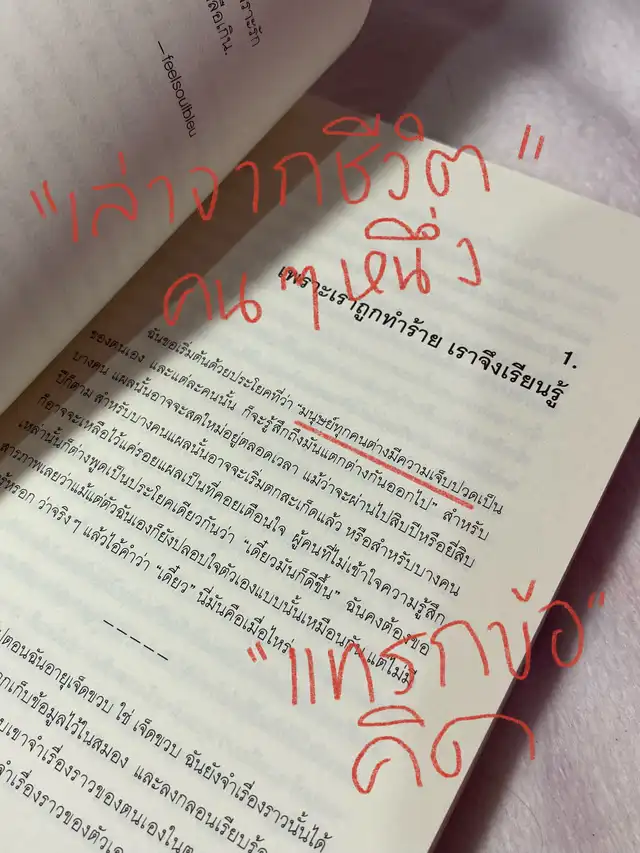 เพราะรัก
—feelsoulbleu
"เล่าจากชีวิต"
คนๆหนึ่ง
1.
เพราะเราถูกทำร้าย เราจึงเรียนรู้
ฉันขอเริ่มต้นด้วยประโยคที่ว่า "มนุษย์ทุกคนต่างมีความเจ็บปวดเป็น
ของตนเอง และแต่ละคนนั้น ก็จะรู้สึกถึงมันแตกต่างกันออกไป" สำหรับ
บางคน แผลนั้นอาจจะสดใหม่อยู่ตลอดเวลา แม้ว่าจะผ่านไปสิบปีหรือยี่สิบ
ปีก็ตาม สำหรับบางคนแผลนั้นอาจจะเริ่มตกสะเก็ดแล้ว หรือสำหรับบางคน
ก็อาจจะเหลือไว้แค่รอยแผลเป็นที่คอยเตือนใจ ผู้คนที่ไม่เข้าใจความรู้สึก
เหล่านั้นก็ต่างพูดเป็นประโยคเดียวกันว่า "เดี๋ยวมันก็ดีขึ้น" ฉันคงต้องขอ
สารภาพเลยว่าแม้แต่ตัวฉันเองก็ยังปลอบใจตัวเองแบบนั้นเหมือนกัน แต่ไม่มี
ว่าจริงๆ แล้วไอ้คำว่า "เดี๋ยว" นี่มันคือเมื่อไหร่
"แทรกข้อ"
คิด
-----
ตอนฉันอายุเจ็ดขวบ ใช่ เจ็ดขวบ ฉันยังจำเรื่องราวนั้นได้
เก็บข้อมูลไว้ในสมอง และลงกลอนเรียบร้อ
เขาจำเรื่องราวของตนเองใน
เรื่องราวของตัวเอ